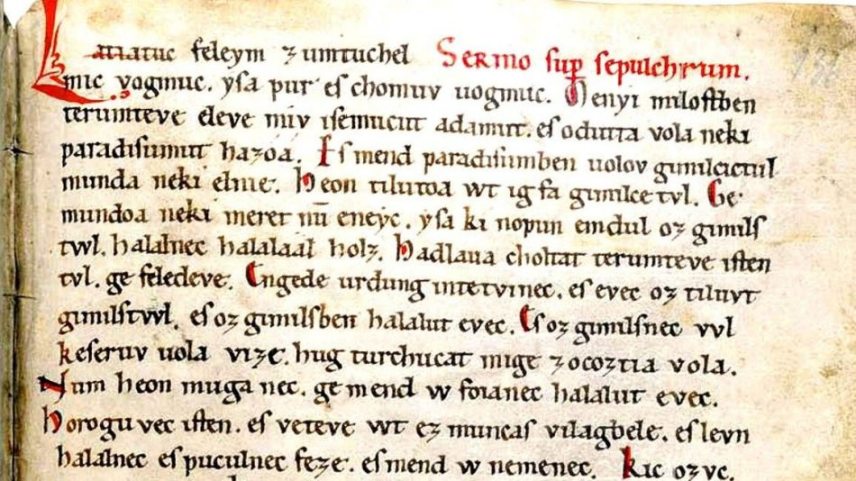 Latiatuc feleym zumtuchel Sermo sup sepulchrum.
mic vogmuc. ysa pur es chomuv uogmuc. Menyi miloſtben
terumteve eleve miv iſemucut adamut. es odutta vola neki
paradiſumut hazoa. Es mend paradiſumben uolov gimilcictul
munda neki elnie. Heon tilutoa wt ig fa gimilce tvl. Ge
mundoa neki meret nū eneyc. yſa ki nopun emdul oz gimilſ
twl. halalnec halalaal holz. Hadlaua choltat terumteve iſten
tvl. ge feledeve. Engede urdung intetvinec. es evec oz tiluvt
gimilſtvvl. es oz gimilſben halalut evec. Es oz gimilſnec vvl
keſeruv uola vize. hug turchucat mige zocoztia vola.
Num heon muga nec. ge mend w foianec halalut evec.
Horogu vec iſten. es veteve wt ez muncas vilagbele. es levn
halalnec es puculnec feze. es mend w nemenec. Kic ozvc.